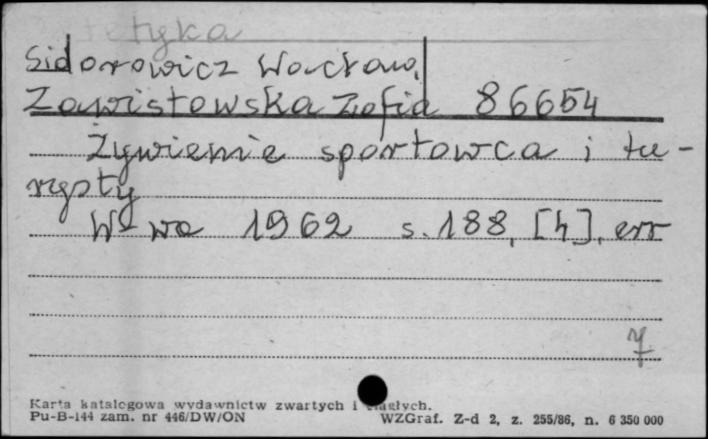 Sidorowicz Wacław,
Zawistowska Zofia 86654
Żywienie sportowca i tu-
rysty
W-wa 1962 s. 188, [4], err
7
Karta katalogowa wydawnictw zwartych i ciągłych.
Pu-B-144 zam. nr 446/DW/ON WZGraf. Z-d 2, z. 255/86, n. 6 350 000